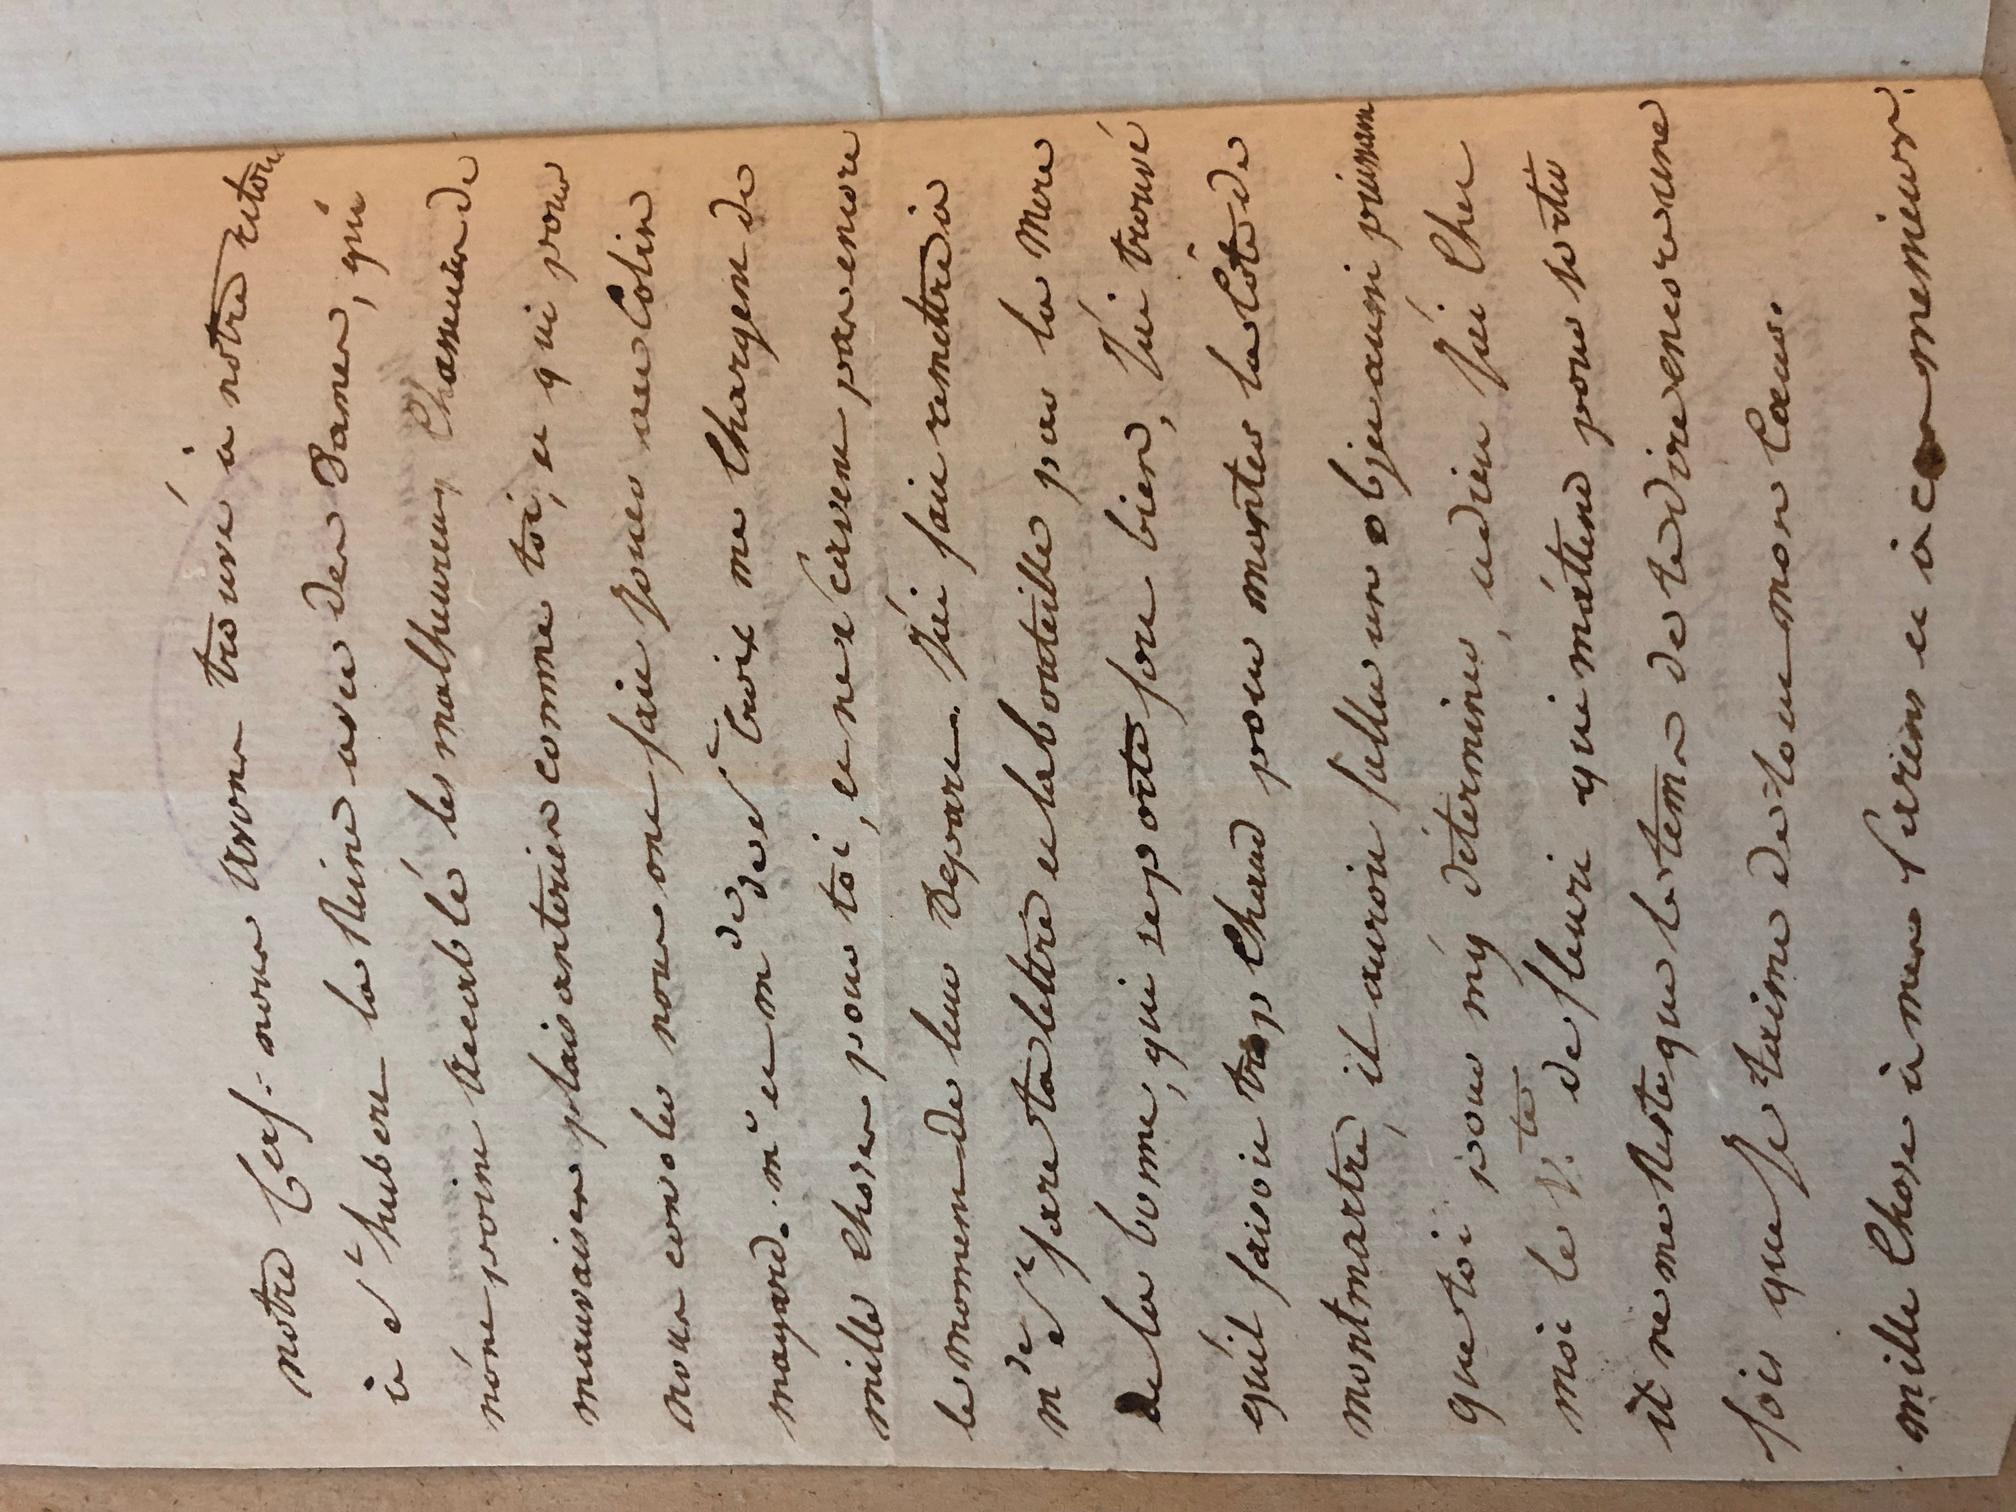 notre Cerf. nous avons trouvé à notre retour
à St hubert la Reine avec des Dames, qui
n'ont point accablé les malheureux Chasseurs de
mauvaises plaisanteries comme toi, et qui pour
nous consoler nous ont fait jouer au Colin
mayard. mr et mde de Ste Croix me chargent de
mille choses pour toi, et ne s'en vont pas encore
le moment de leur Depart. J'ai fait remettre à
mde St fare ta lettre et la bouteille pour la Mere
de la bonne, qui se porte fort bien, J'ai trouvé
qu'il faisoit trop chaud pour monter la Côte de
montmartre, il auroit fallu un objet aussi puissant
que toi pour m'y déterminer, adieu J'ai chez
moi le V.te de fleuri qui m'attend pour sortir
il ne me Reste que le tems de te dire encore une
fois que Je t'aime de tout mon Coeur.
mille Chose à mes Parens et à ces messieurs.